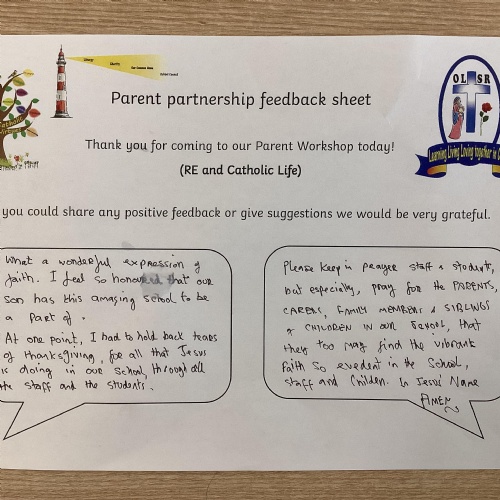 OL SR
Learning Living Loving together in C
Parent partnership feedback sheet
Thank you for coming to our Parent Workshop today!
(RE and Catholic Life)
you could share any positive feedback or give suggestions we would be very grateful.
What a wonderful expression of
faith. I feel so honoured that our
son has this amazing school to be
a part of.
At one point, I had to hold back tears
of thanksgiving, for all that Jesus
is doing in our school, through all
the staff and the students.
Please keep in prayer staff & students,
but especially, pray for the PARENTS,
CARERS, FAMILY MEMBERS & SIBLINGS
of CHILDREN IN OUR SCHOOL, that
they too may find the vibrant
faith so evedent in the School,
staff and Children. In Jesus' Name
AMEN